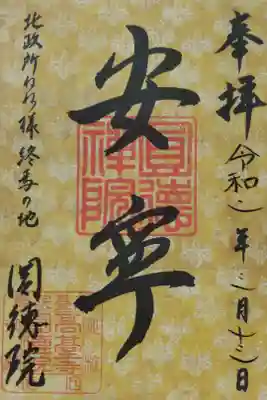 奉拝
令和二年月十日
安寧
圓德
禅院
北政所ねね様終焉の地
圓徳院